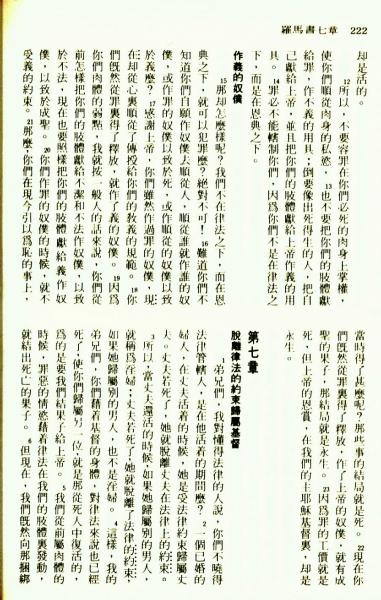 羅馬書七章 222
却是活的。
12所以，不要容罪在你們必死的肉身上掌權，
使你們順從肉身的私慾，13也不要把你們的肢體獻
給罪，作不義的用具；倒要像出死得生的人，把自
己獻給上帝，並且把你們的肢體獻給上帝作義的用
具。14罪必不能轄制你們，因爲你們不是在律法之
下，而是在恩典之下。
作義的奴僕
15那却怎麼樣呢？我們不在律法之下，而在恩
典之下，就可以犯罪麼？絕對不可！16難道你們不
知道你們自願作奴僕去順從人，順從誰就作誰的奴
僕，或作罪的奴僕以致於死，或作順從的奴僕以致
於義麼？17感謝上帝，你們雖然作過罪的奴僕，現
在却從心裏順從了傳授給你們的教義的規範。18你
們旣然從罪裏得了釋放，就作了義的奴僕。19因爲
你們肉體的弱點，我就按一般人的話來說，你們從
前怎樣把你們的肢體獻給不潔和不法作奴僕，以致
於不法，現在也要照樣把你們的肢體獻給義作奴
僕，以致於成聖。20你們作罪的奴僕的時候，就不
受義的約束。21那麼，你們在現今引以爲恥的事上，
當時得了甚麼呢？那些事的結局就是死。22現在你
們旣然從罪裏得了釋放，作了上帝的奴僕，就有成
聖的果子，那結局就是永生。23因爲罪的工價就是
死；但上帝的恩賞，在我們的主耶穌基督裏，却是
永生。
第七章
脫離律法的約束歸屬基督
1弟兄們，我對懂得法律的人說，你們不曉得
法律管轄人，是在他活着的期間麼？2一個已婚的
婦人，在丈夫活着的時候，她是受法律約束歸屬丈
夫。丈夫若死了，她就脫離丈夫在法律上的約束。
3所以，當丈夫還活的時候，如果她歸屬別的男人，
就稱爲淫婦；丈夫若死了，她就脫離了法律的約束，
如果她歸屬別的男人，也不是淫婦。4這樣，我的
弟兄們，你們藉着基督的身體，對律法來說也已經
死了，使你們歸屬另一位，就是那從死人中復活的，
爲的是要我們結果子給上帝。5我們從前屬肉體的
時候，罪惡的情慾藉着律法在我們的肢體裏發動，
就結出死亡的果子。6但現在，我們旣然向那捆綁